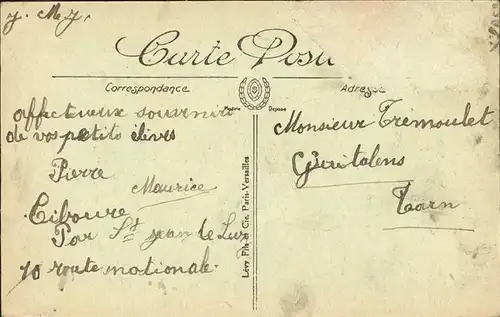 Carte Posta
Correspondance
Adresse
Modèle Déposé
affectueux souvenirs
de vos petits élèves
Pierre
Maurice
Ciboure
Par St Jean de Luz
10 route nationale
Lévy Fils et Cie, Paris-Versailles
Monsieur Trémoulet
Guitalens
Tarn